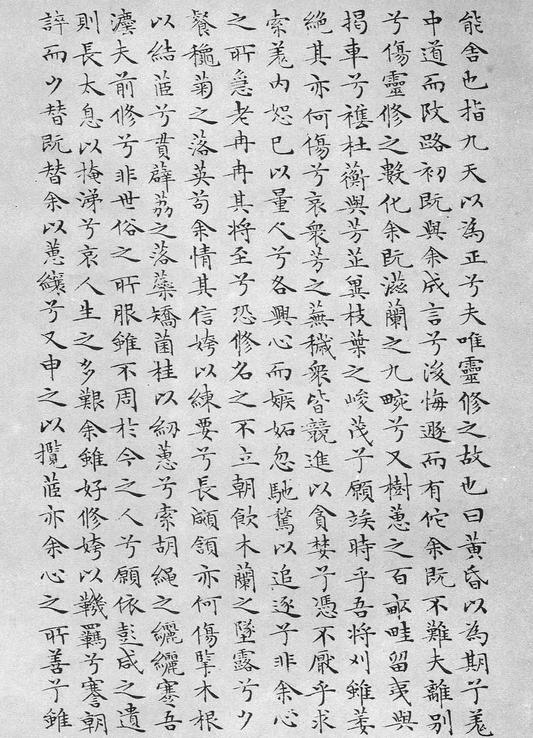 能舍也指九天以為正兮夫唯靈修之故也曰黃昏以為期兮羌
中道而改路初既與余成言兮後悔遯而有佗余既不難夫離別
兮傷靈修之數化余既滋蘭之九畹兮又樹蕙之百畝畦留夷與
揭車兮襍杜蘅與芳芷冀枝葉之峻茂兮願竢時乎吾將刈雖萎
絕其亦何傷兮哀衆芳之蕪穢衆皆競進以貪婪兮憑不厭乎求
索羌內恕已以量人兮各興心而嫉妬忽馳騖以追逐兮非余心
之所急老冉冉其將至兮恐修名之不立朝飲木蘭之墜露兮夕
餐穐菊之落英苟余情其信姱以練要兮長顑頷亦何傷擥木根
以結茝兮貫薜荔之落蘂矯菌桂以紉蕙兮索胡繩之纚纚謇吾
灋夫前修兮非世俗之所服雖不周於今之人兮願依彭咸之遺
則長太息以掩涕兮哀人生之多艱余雖好修姱以鞿羈兮謇朝
誶而夕替既替余以蕙纕兮又申之以攬茝亦余心之所善兮雖